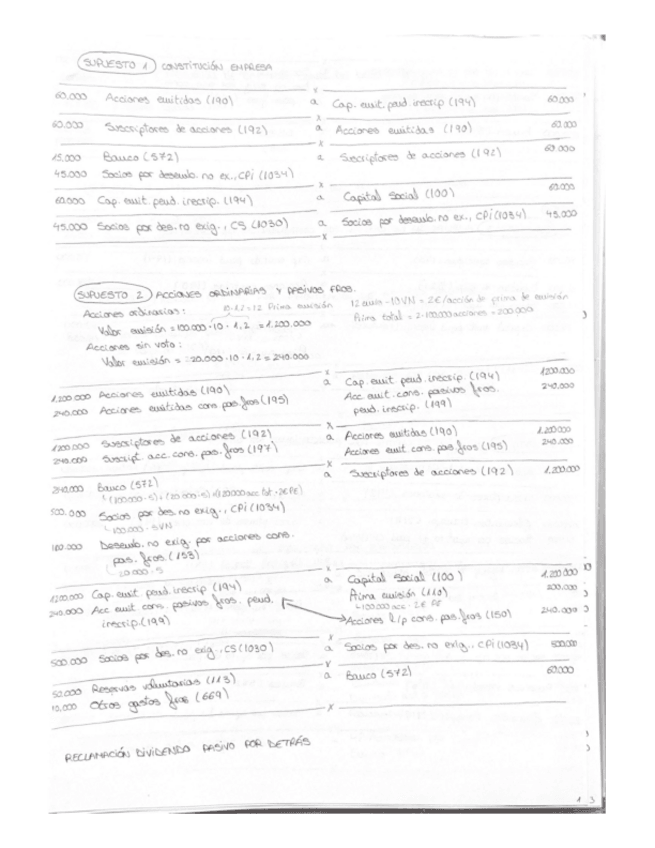 SUPUESTO 1 CONSTITUCIÓN EMPRESA
x
60.000 Acciones emitidas (190) a Cap. emit. pend. inscrip (194) 60.000
x
60.000 Suscriptores de acciones (192) a Acciones emitidas (190) 60.000
x
15.000 Banco (572) a Suscriptores de acciones (192) 60.000
45.000 Socios por desemb. no ex., CPi (1034)
x
60.000 Cap. emit. pend. inscrip. (194) a Capital Social (100) 60.000
x
45.000 Socios por des. no exig., CS (1030) a Socios por desemb. no ex., CPi (1034) 45.000
x
SUPUESTO 2 ACCIONES ORDINARIAS Y PASIVOS FROS.
Acciones ordinarias: 10·1.2 = 12 Prima emisión 12 euros - 10 VN = 2€/acción de prima de emisión
Valor emisión = 100.000 · 10 · 1.2 = 1.200.000 Prima total = 2·100.000 acciones = 200.000
Acciones sin voto:
Valor emisión = 20.000 · 10 · 1.2 = 240.000
x
1.200.000 Acciones emitidas (190) a Cap. emit. pend. inscrip. (194) 1.200.000
240.000 Acciones emitidas cons. pas. fros (195) Acc. emit. cons. pasivos fros. 240.000
pend. inscrip. (199)
x
1.200.000 Suscriptores de acciones (192) a Acciones emitidas (190) 1.200.000
240.000 Suscript. acc. cons. pas. fros (197) Acciones emit. cons. pas. fros (195) 240.000
x
Banco (572) a Suscriptores de acciones (192) 1.200.000
500.000 Socios por des. no exig., CPi (1034)
100.000 · 5 VN
100.000 Desemb. no exig. por acciones cons.
pas. fros. (153)
20.000 · 5
x
1.200.000 Cap. emit. pend. inscrip (194) a Capital Social (100) 1.200.000
240.000 Acc emit. cons. pasivos fros. pend. Prima emisión (110) 200.000
100.000 acc · 2€ PE
inscrip. (199) Acciones l/p cons. pas. fros (150) 240.000
x
500.000 Socios por des. no exig., CS (1030) a Socios por des. no exig., CPi (1034) 500.000
x
50.000 Reservas voluntarias (113) a Banco (572) 60.000
10.000 Otros gastos fros (669)
x
RECLAMACIÓN DIVIDENDO PASIVO POR DETRÁS